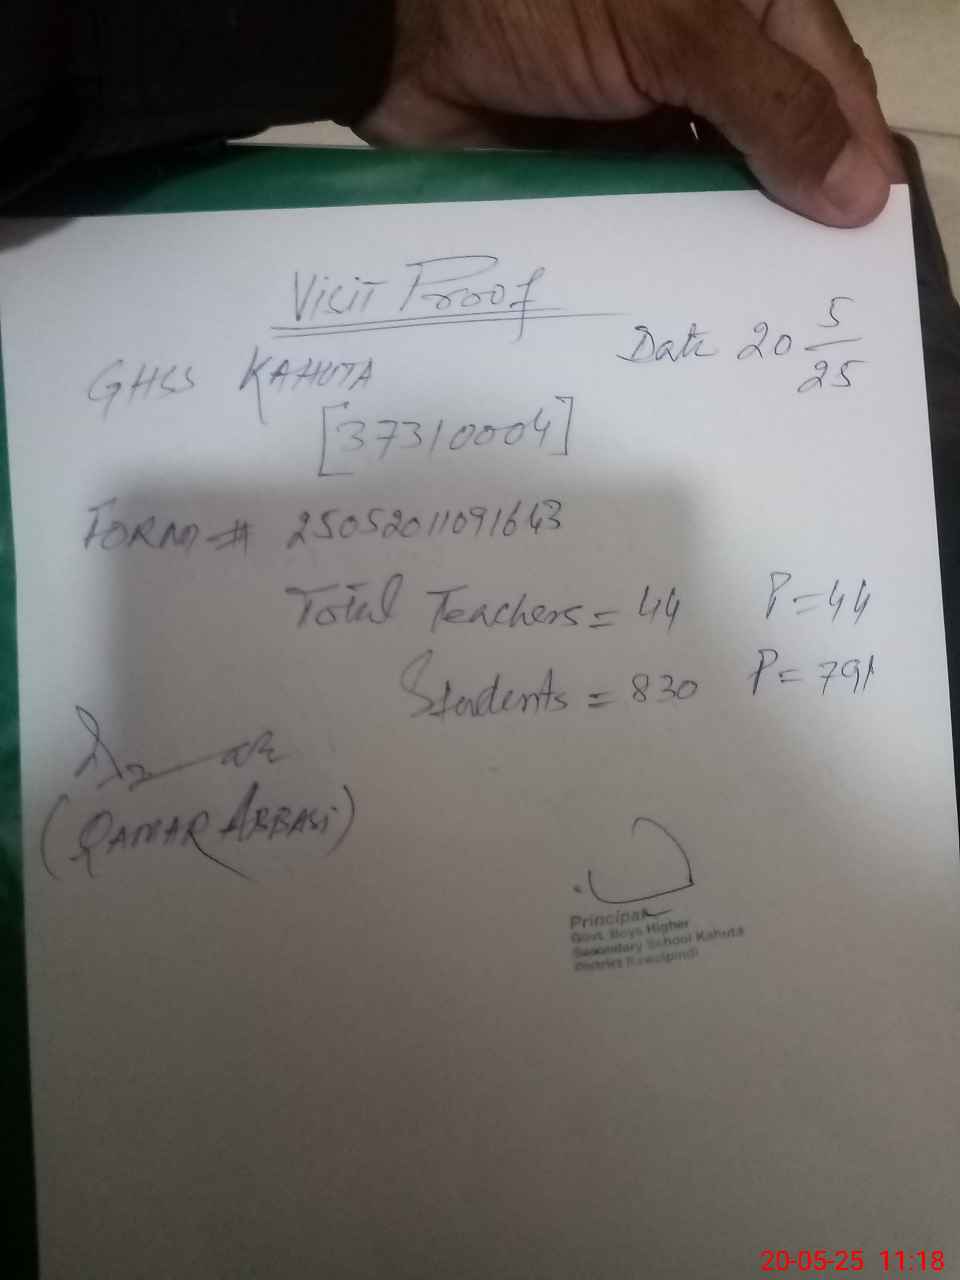 Visit Proof
Date 20 5/25
GHSS KAHUTA
[37310004]
FORM # 25052011091643
Total Teachers = 44 P = 44
Students = 830 P = 791
(QAMAR ABBASi)
Principal
Govt. Boys Higher
Secondary School Kahuta
District Rawalpindi
20-05-25 11:18